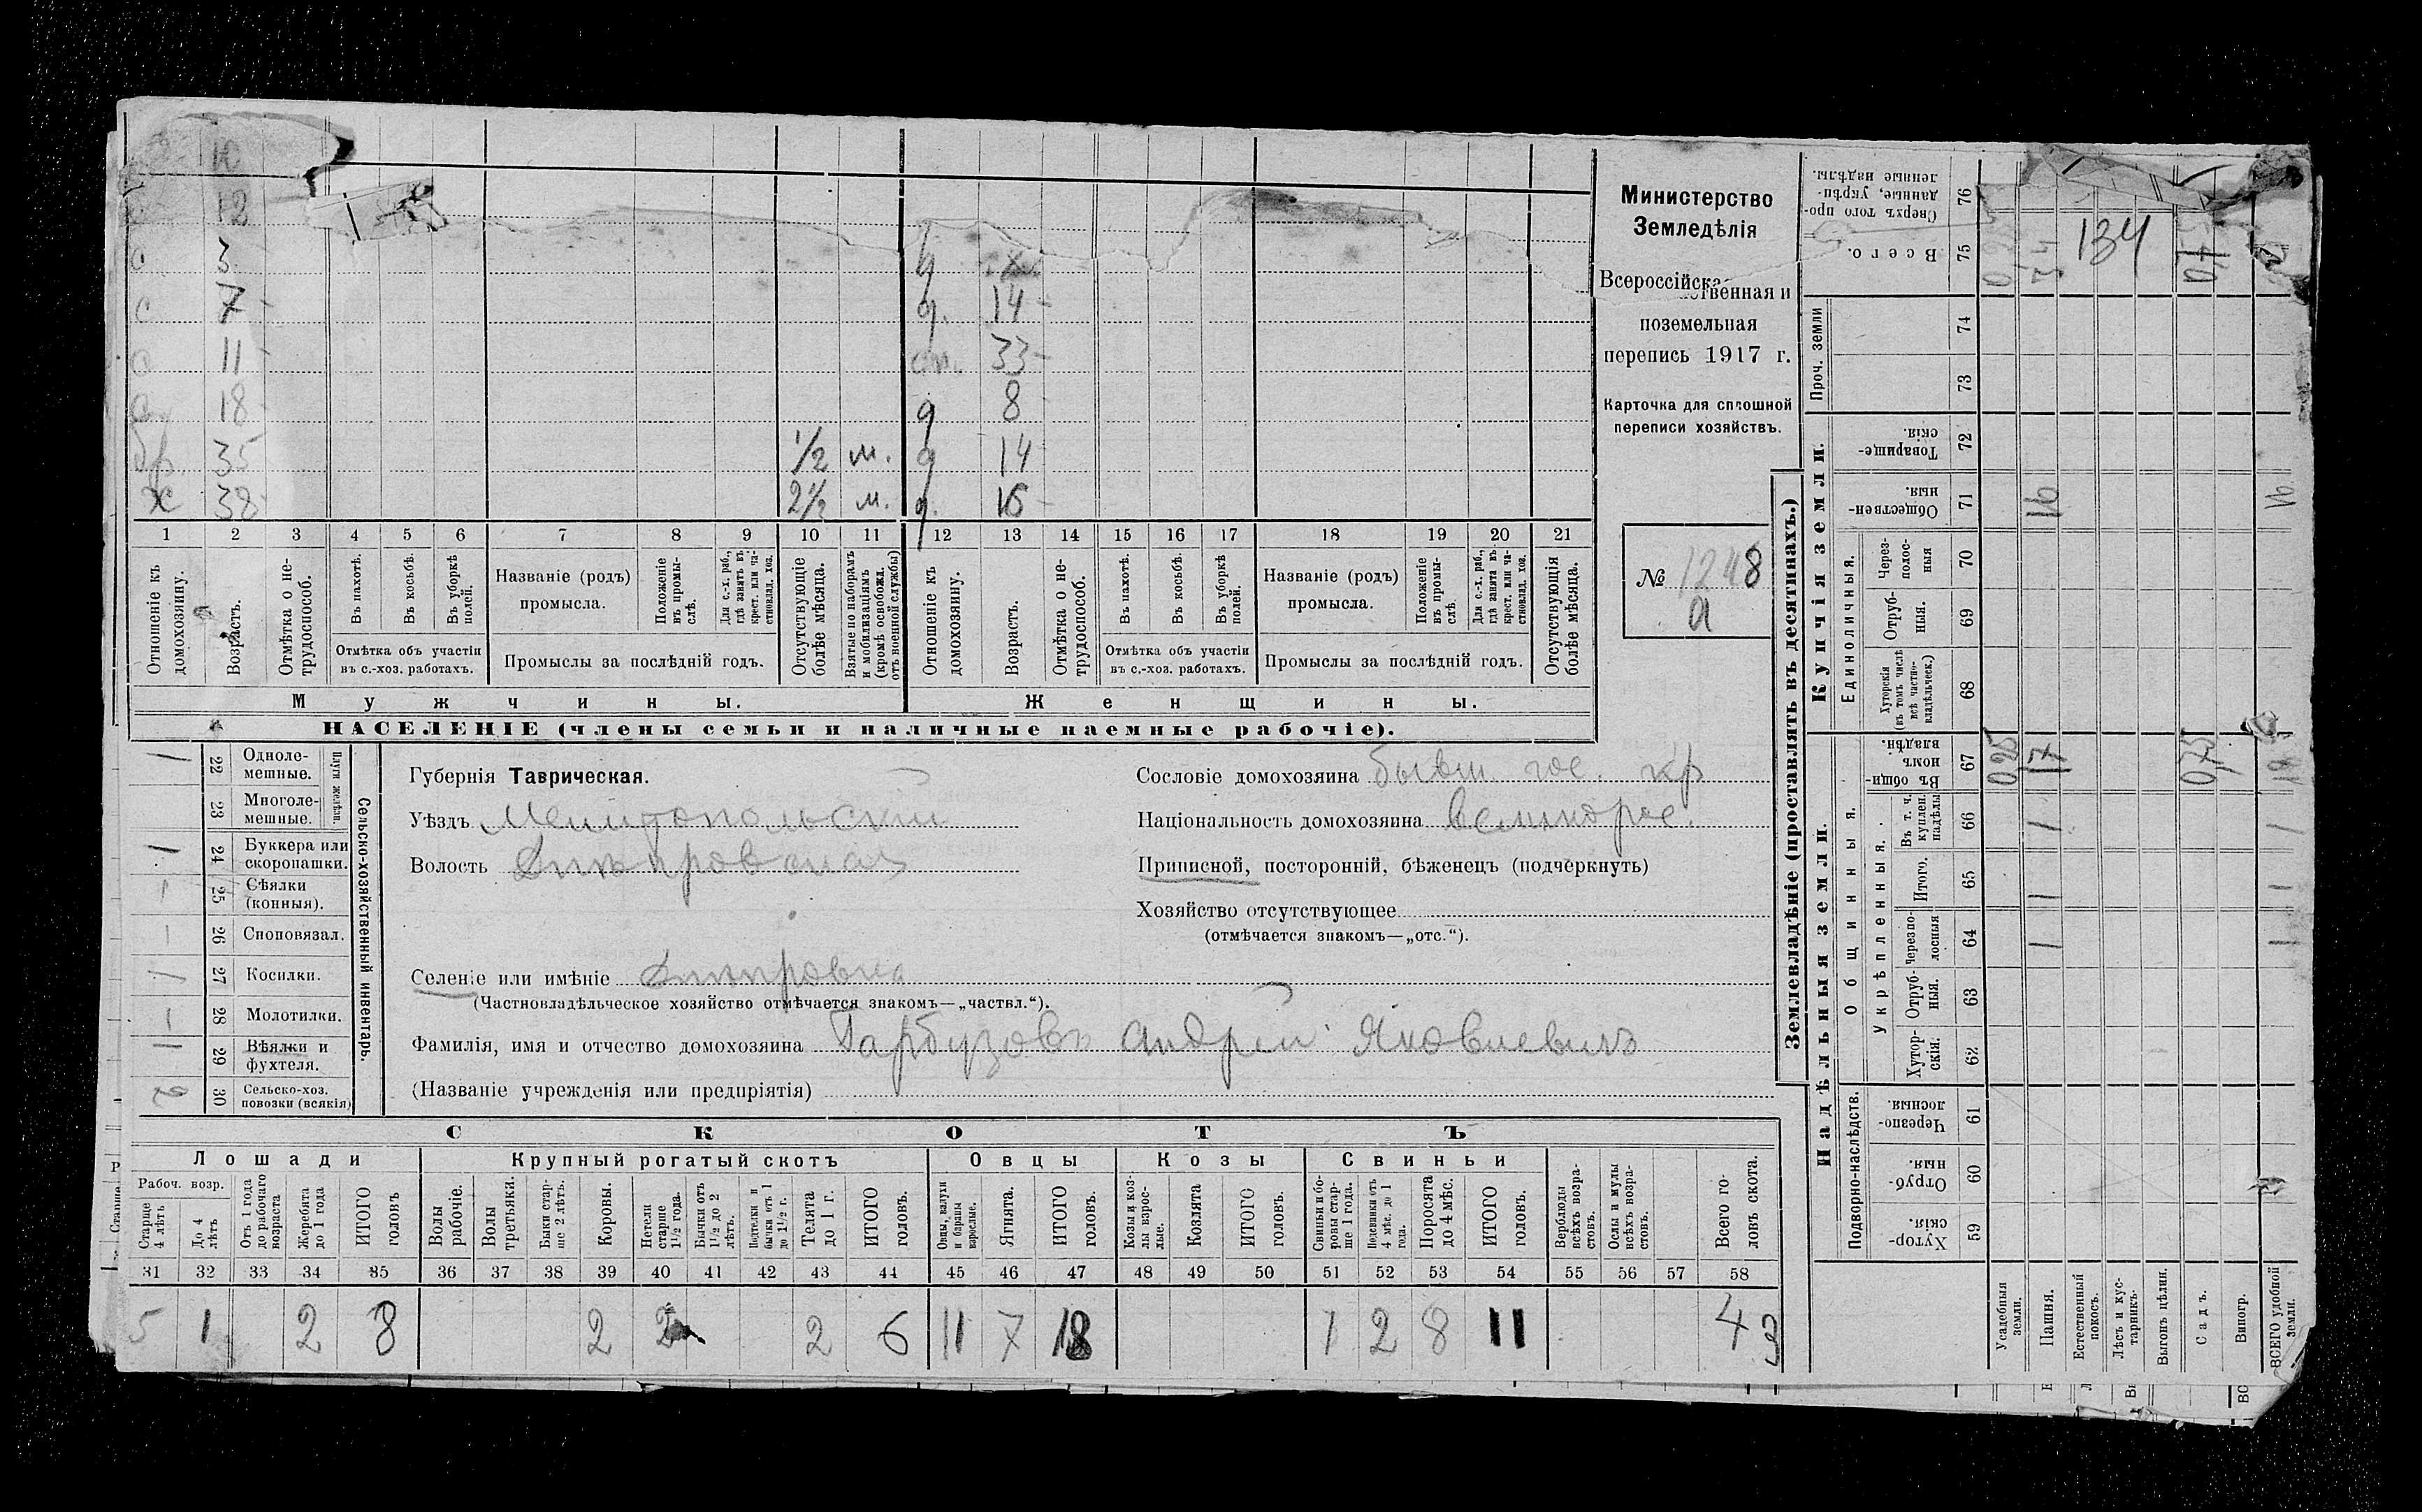 10
12
с 3
с 7 ч. 14
с 11 33
с 18 8
бр. 35 1/2 м. 14
х 38 2 1/2 м. 16
1 2 3 4 5 6 7 8 9 10 11 12 13 14 15 16 17 18 19 20 21
Отношеніе къ домохозяину.
Возрастъ.
Отмѣтка о не-
трудоспособ.
Въ пахотѣ.
Въ косьбѣ.
Въ уборкѣ полей.
Отмѣтка объ участіи
въ с.-хоз. работахъ.
Названіе (родъ)
промысла.
Положеніе въ промы-
слѣ.
Для с.-х. раб.,
гдѣ занятъ въ
крест. или ча-
стновлад. хоз.
Промыслы за послѣдній годъ.
Отсутствующіе
болѣе мѣсяца.
Взятые по наборамъ
и мобилизаціямъ
(кромѣ освобожд.
отъ военной службы)
Отношеніе къ
домохозяину.
Возрастъ.
Отмѣтка о не-
трудоспособ.
Въ пахотѣ.
Въ косьбѣ.
Въ уборкѣ
полей.
Отмѣтка объ участіи
въ с.-хоз. работахъ.
Названіе (родъ)
промысла.
Положеніе
въ промы-
слѣ.
Для с.-х. раб.,
гдѣ занята въ
крест. или ча-
стновлад. хоз.
Промыслы за послѣдній годъ.
Отсутствующія
болѣе мѣсяца.
Мужчины.
Женщины.
НАСЕЛЕНІЕ (члены семьи и наличные наемные рабочіе).
Министерство
Земледѣлія
Всероссійска
ственная и
поземельная
перепись 1917 г.
Карточка для сплошной
переписи хозяйствъ.
№ 1248
а
Сельско-хозяйственный инвентарь.
Плуги желѣзн.
1 22 Одноле-
мешные.
23 Многоле-
мешные.
1 24 Буккера или
скоропашки.
1 25 Сѣялки
(конныя).
26 Сноповязал.
1 27 Косилки.
1 28 Молотилки.
1 29 Вѣялки и
фухтеля.
2 30 Сельско-хоз.
повозки (всякія)
Губернія Таврическая.
Уѣздъ Мелитопольскій
Волость Днѣпровская
Селеніе или имѣніе Днѣпровка
(Частновладѣльческое хозяйство отмѣчается знакомъ—„частвл.“).
Фамилія, имя и отчество домохозяина Гарбузовъ Андрей Яковлевичъ
(Названіе учрежденія или предпріятія)
Сословіе домохозяина бывш. гос. кр
Національность домохозяина великорос.
Приписной, посторонній, бѣженецъ (подчеркнуть)
Хозяйство отсутствующее
(отмѣчается знакомъ—„отс.“).
СКОТЪ
Лошади Крупный рогатый скотъ Овцы Козы Свиньи
Рабоч. возр.
Старше
4 лѣтъ
До 4
лѣтъ
Отъ 1 года
до рабочаго
возраста
Жеребята
до 1 года
ИТОГО
головъ
Волы
рабочіе.
Волы
третьяки.
Быки стар-
ше 2 лѣтъ.
Коровы.
Нетели
старше
1½ года.
Бычки отъ
1½ до 2
лѣтъ.
Подтелки и
бычки отъ 1
до 1½ г.
Телята
до 1 г.
ИТОГО
головъ.
Овцы, валухи
и бараны
взрослые.
Ягнята.
ИТОГО
головъ.
Козы и коз-
лы взрос-
лые.
Козлята
ИТОГО
головъ.
Свиньи и бо-
ровы стар-
ше 1 года.
Подсвинки отъ
4 мѣс. до 1
года.
Поросята
до 4 мѣс.
ИТОГО
головъ.
Верблюды
всѣхъ возра-
стовъ.
Ослы и мулы
всѣхъ возра-
стовъ.
Всего го-
ловъ скота.
31 32 33 34 35 36 37 38 39 40 41 42 43 44 45 46 47 48 49 50 51 52 53 54 55 56 57 58
5 1 2 8 2 2 2 6 11 7 18 1 2 8 11 43
Землевладѣніе (проставлять въ десятинахъ.)
Надѣльныя земли.
Купчія земли.
Проч. земли
Подворно-наслѣдств.
Общинныя.
Укрѣпленныя.
Единоличныя.
Хутор-
скія. 59
Отруб-
ныя. 60
Черезпо-
лосныя. 61
Хутор-
скія. 62
Отруб-
ныя. 63
Черезпо-
лосныя 64
Итого. 65
Въ т. ч.
куплен.
надѣлы 66
Въ общин-
номъ
владѣн. 67
Хуторскія
(въ томъ числѣ
всѣ частно-
владѣльческ.) 68
Отруб-
ныя. 69
Через-
полос-
ныя 70
Обществен-
ныя. 71
Товарище-
скія. 72
73
74
Всего. 75
Сверхъ того про-
данные, укрѣп-
ленные надѣлы. 76
Усадебныя
земли. 0,25
Пашня. 1 1 1 17 16 34
Естественный
покосъ.
134
Лѣсъ и кус-
тарникъ.
Выгонъ цѣлин.
Садъ. 0,75 0,75
Виногр.
ВСЕГО удобной
земли. 1 1 1 18 16